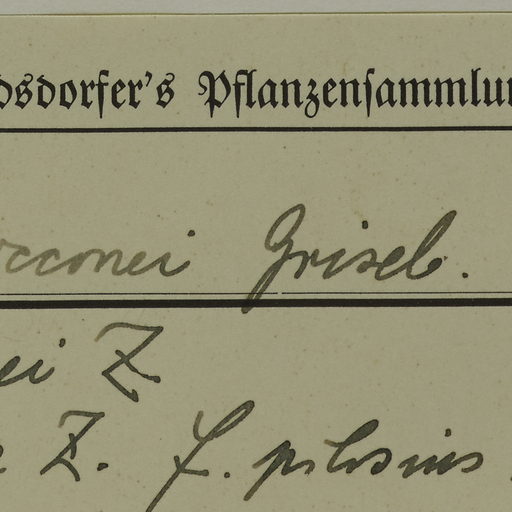 dsdorfer's Pflanzensammlun
cconei Griseb.
ei Z
Z. f. pilosius